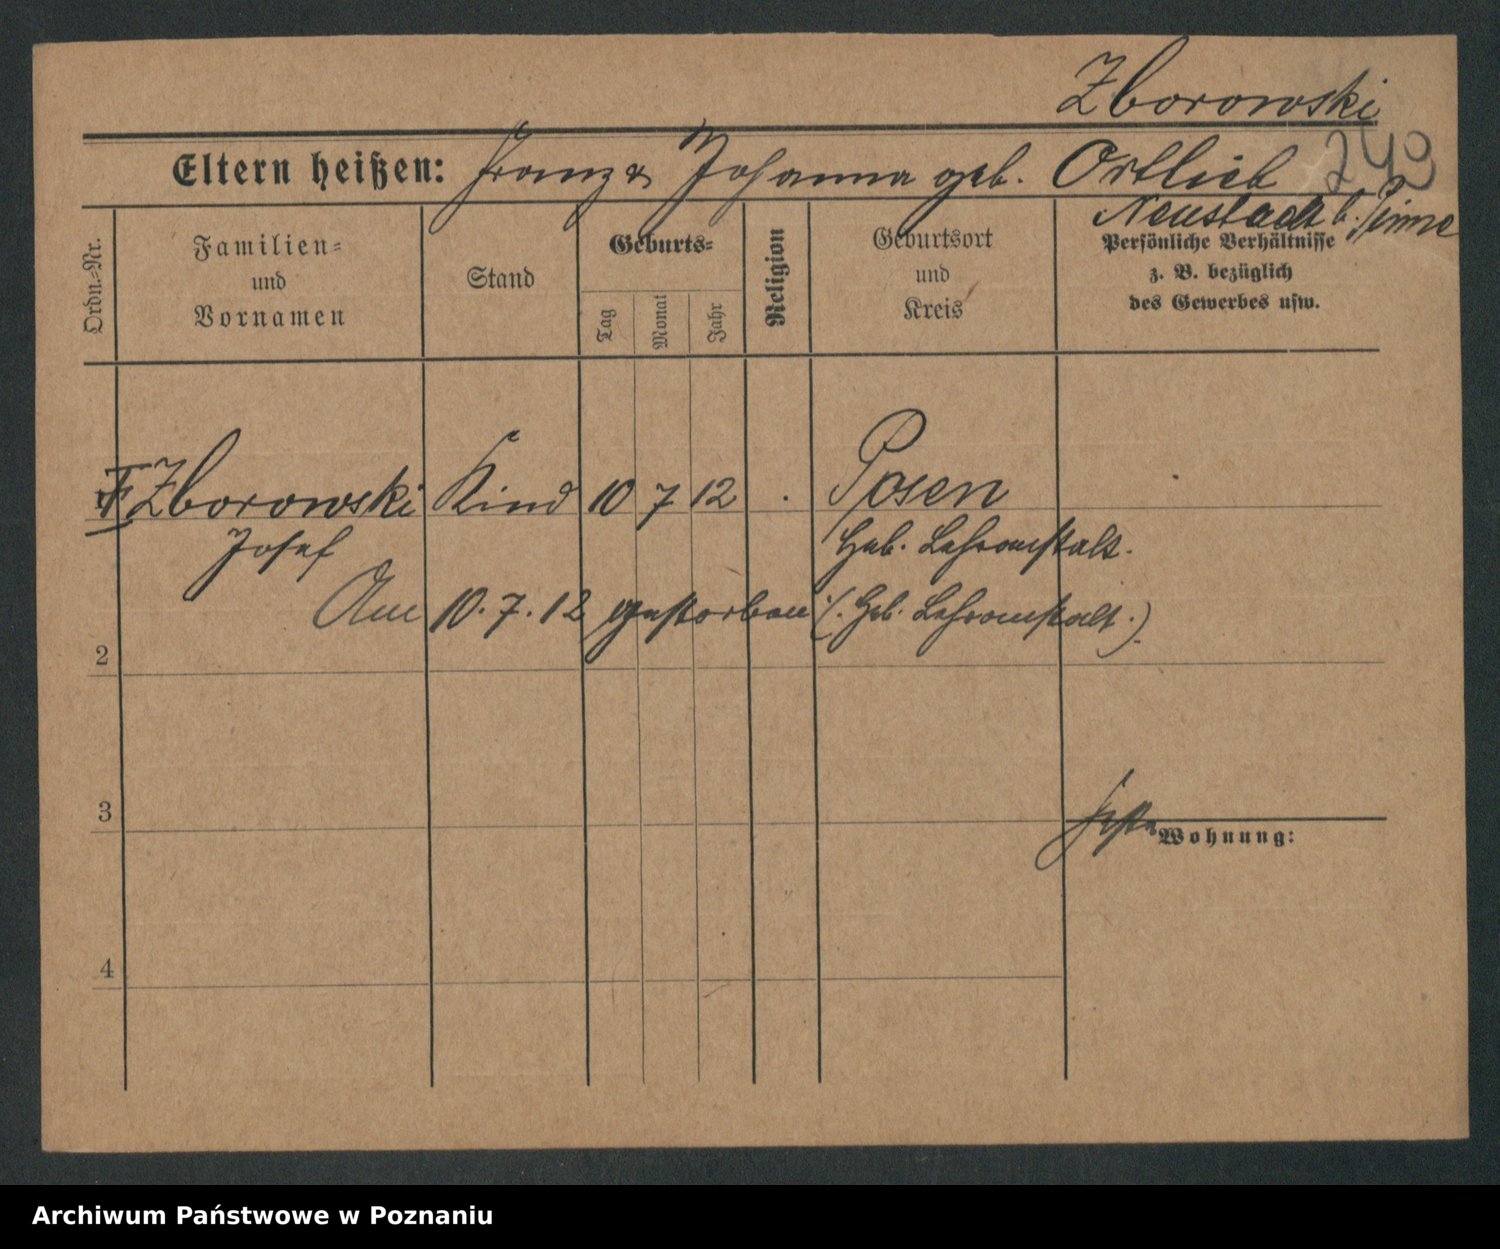 Zborowski
Eltern heißen: Franz & Johanna geb. Ortlieb
249
Neustadt b. Pinne
Ordn.-Nr.
Familien-
und
Vornamen
Stand
Geburts-
Tag
Monat
Jahr
Religion
Geburtsort
und
Kreis
Persönliche Verhältnisse
z. B. bezüglich
des Gewerbes usw.
Zborowski Kind 10 7 12 . Posen
Josef Heb. Lehranstalt.
Am 10. 7. 12 gestorben (. Heb. Lehranstalt.)
2
3
Wohnung:
4
Archiwum Państwowe w Poznaniu